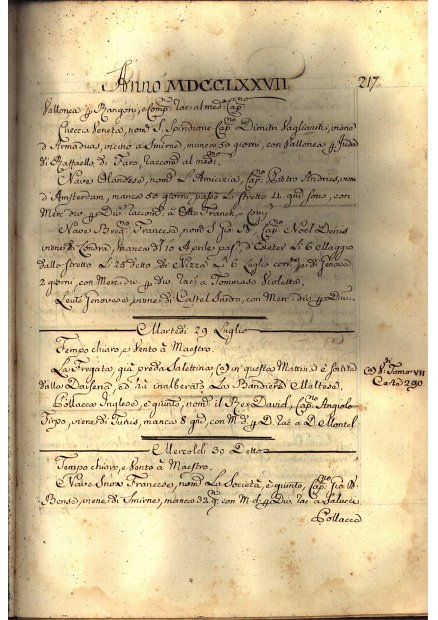 Anno MDCCLXXVII
217
Vallonea Rangoni, e Comp. rac. al med.mo Cap.no
Checcia Veneta, nom.ta S. Spiridione Cap.no Dimitri, viene
d'Armadvas, vicino a Smirne, manca 50 giorni, con Vallonea
di Raffaello di Faro, raccom. al med.mo
Nave Olandese, nom.ta L'Amicizia, Cap.no Pietro Andries, viene
d'Amsterdam, manca 50 giorni, passò lo stretto 12 qud. sono, con
Mer. div. Div. raccom. a Otto Franck, e Comp.
Nave Francese, nom.ta S. Gio. Cap.no Noel Denis
viene di Londra, manca di 10 Aprile pas. d'Exeter li 6 Maggio
dallo stretto li 25 detto, di Nizza li 6 Luglio con di Genova
2 giorni, con Mer. div. div. rac. a Tommaso Violetta.
Leuto Genovese, viene di Castel Sardo, con Mer. div. Div.
Martedì 29 Luglio
Tempo chiaro, e Vento à Maestro.
La Fregata, già preda Salettina (a) in questa Mattina è sortita
dalla Darsena, ed à inalberato La Bandiera Maltese.
(a) V. Tomo VII
Carte 290
Pollacca Inglese, e quinto, nom.ta il Rex David, Cap.no Angiolo
Tirpo, viene di Tunis, manca 8 qud. con M. d. D. rac. a D. Montel
Mercoldì 30 Detto
Tempo chiaro, e Vento à Maestro.
Nave Snow Francese, nom.ta La Società, e quinto, Cap.no Gio. B.
Bense, viene di Smirne, manca 32 q. con M. d. Div. rac. a Salucci
Pollacca